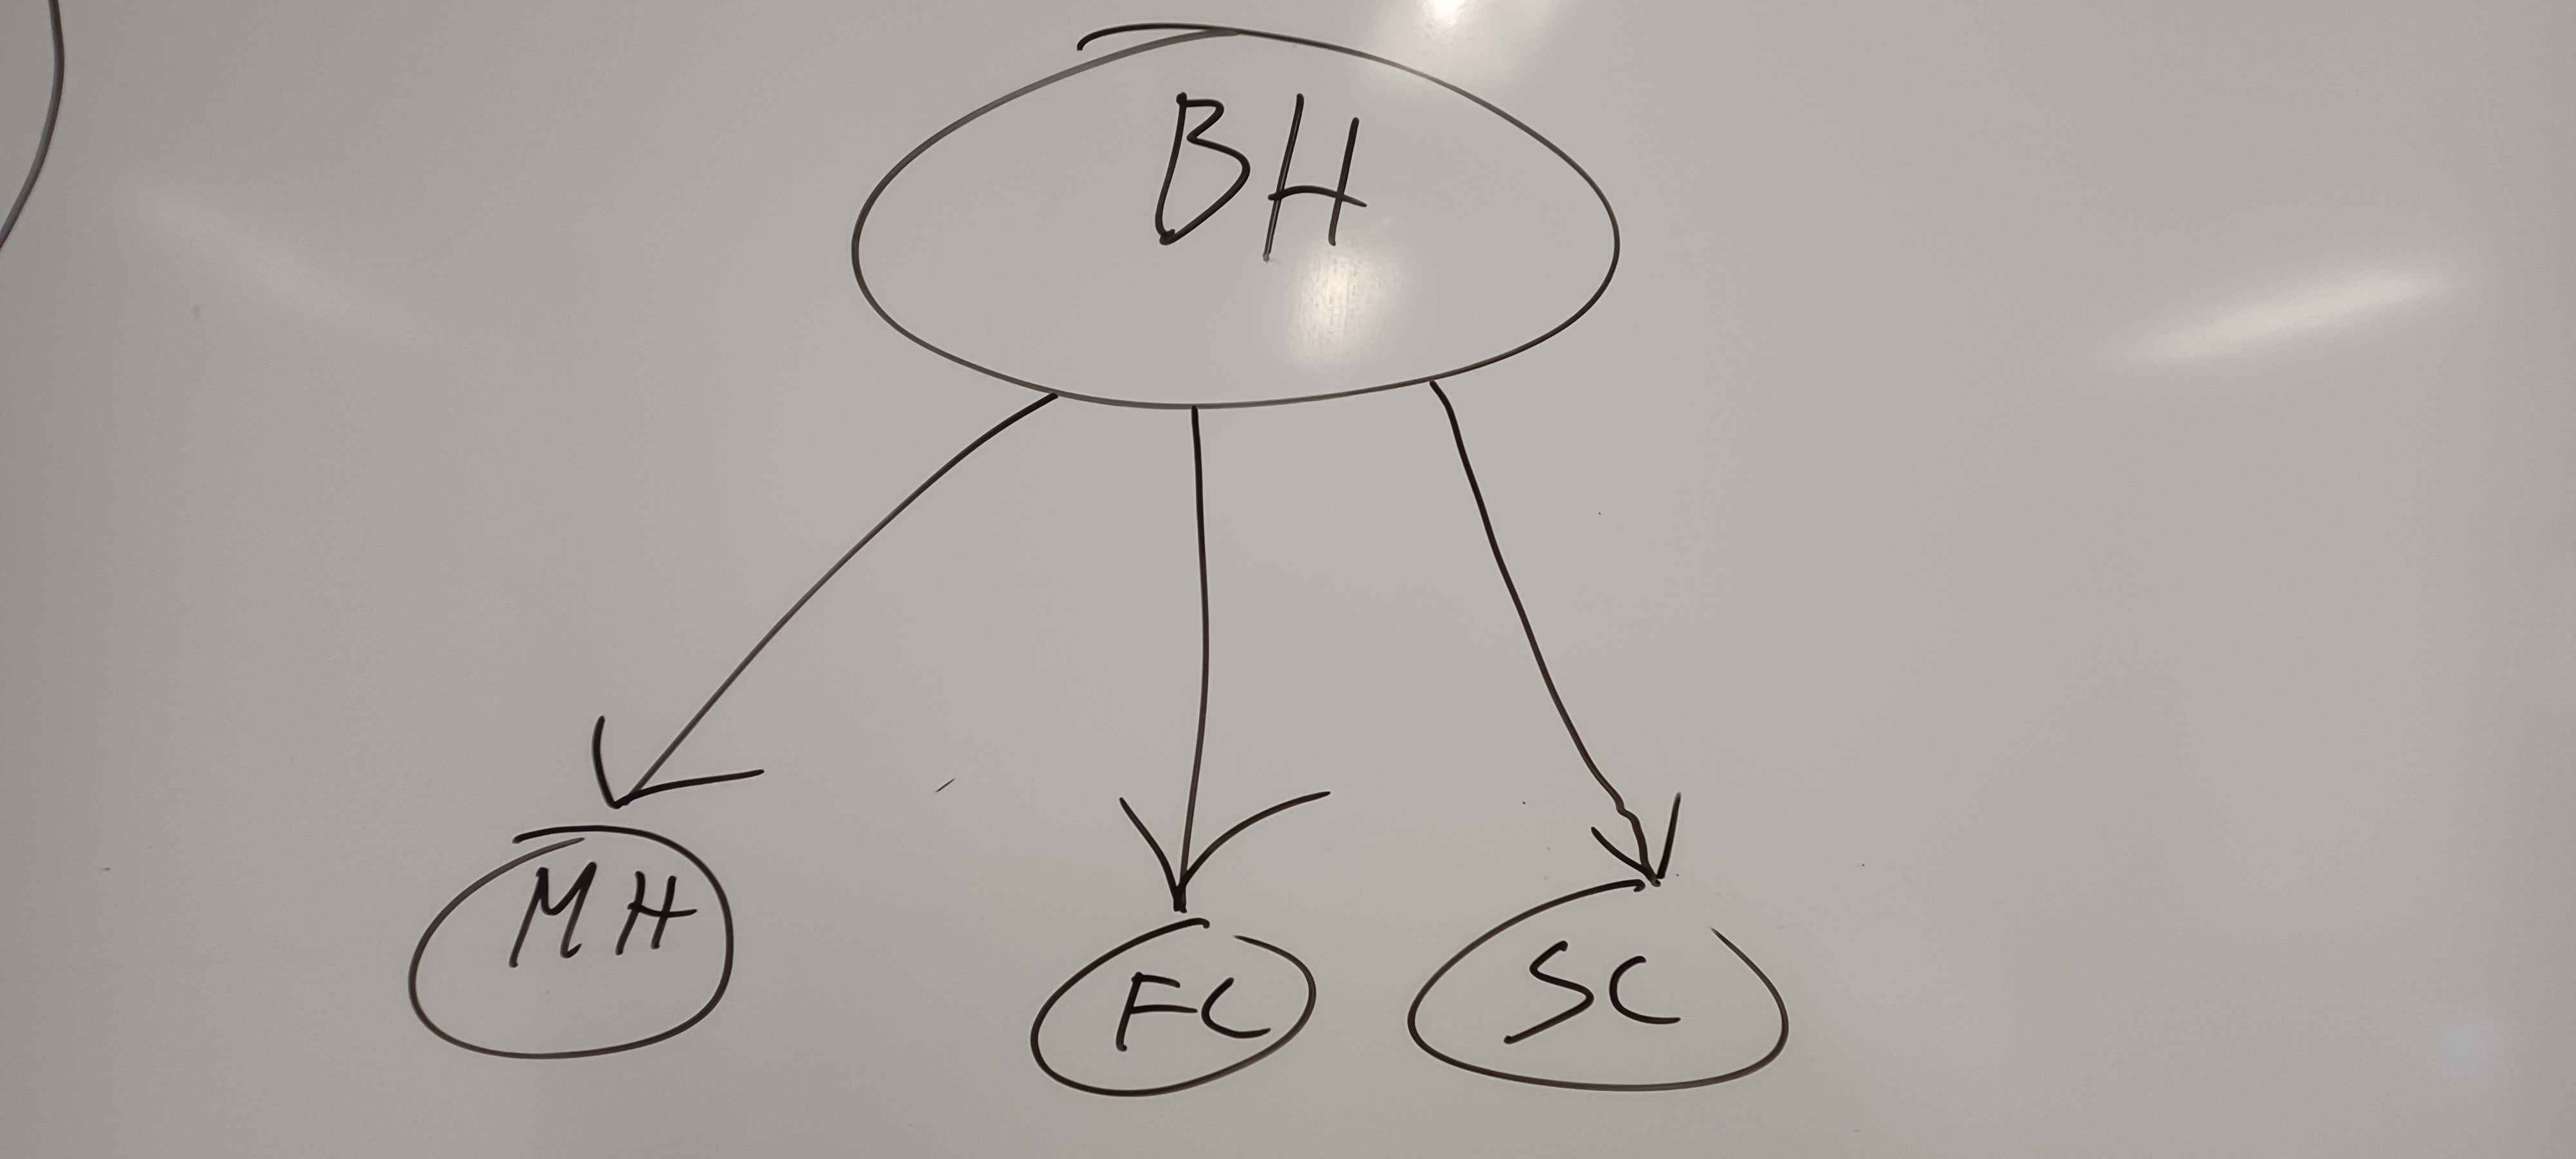 BH
MH
FC
SC